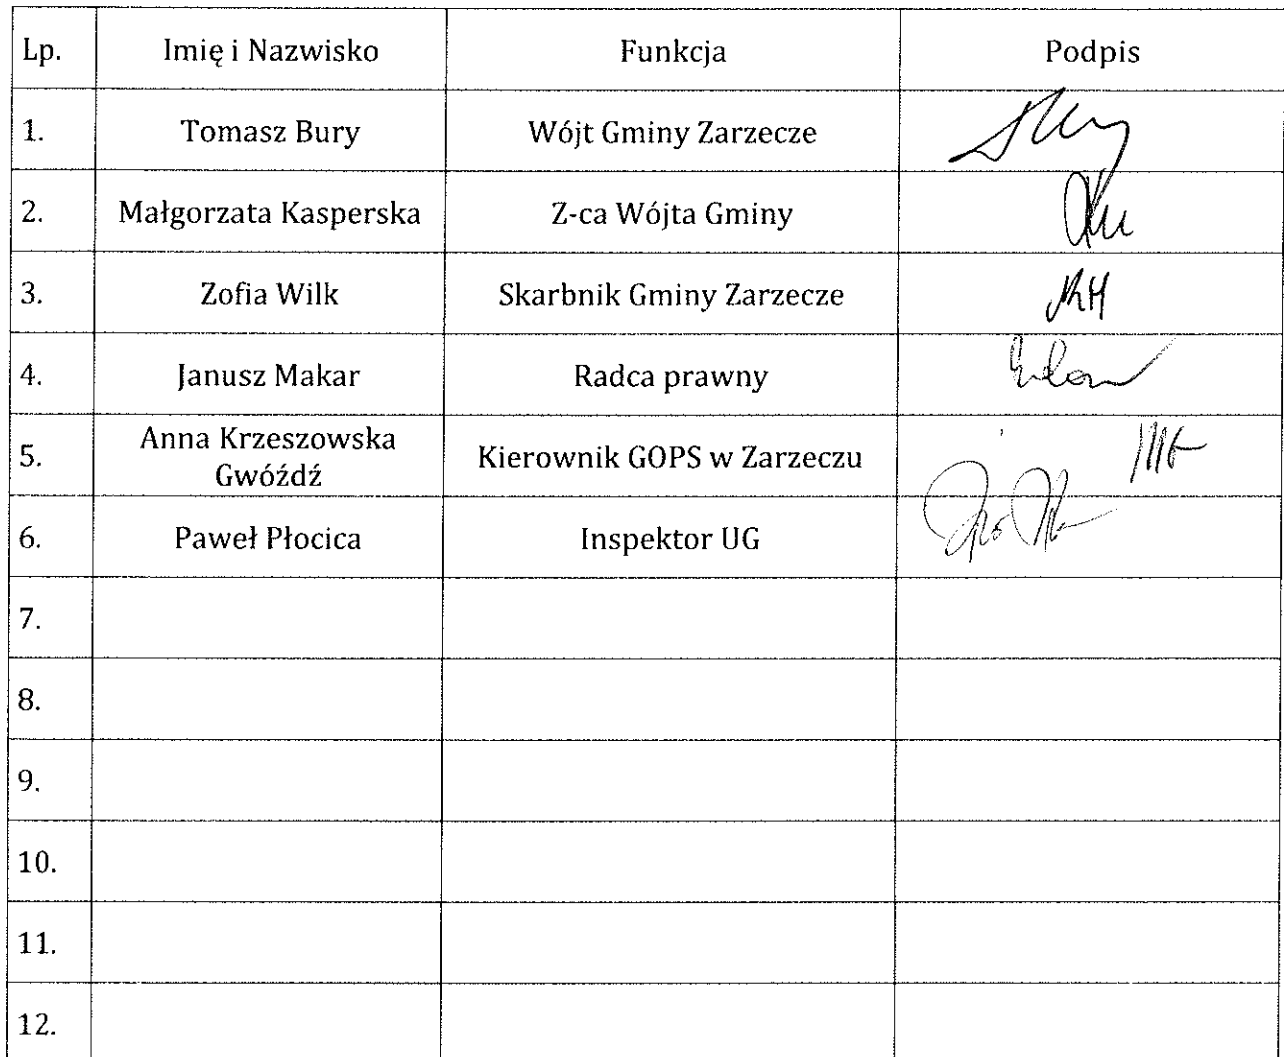 Lp. Imię i Nazwisko Funkcja Podpis
1. Tomasz Bury Wójt Gminy Zarzecze
2. Małgorzata Kasperska Z-ca Wójta Gminy
3. Zofia Wilk Skarbnik Gminy Zarzecze
4. Janusz Makar Radca prawny
5. Anna Krzeszowska Kierownik GOPS w Zarzeczu
Gwóźdź
6. Paweł Płocica Inspektor UG
7.
8.
9.
10.
11.
12.